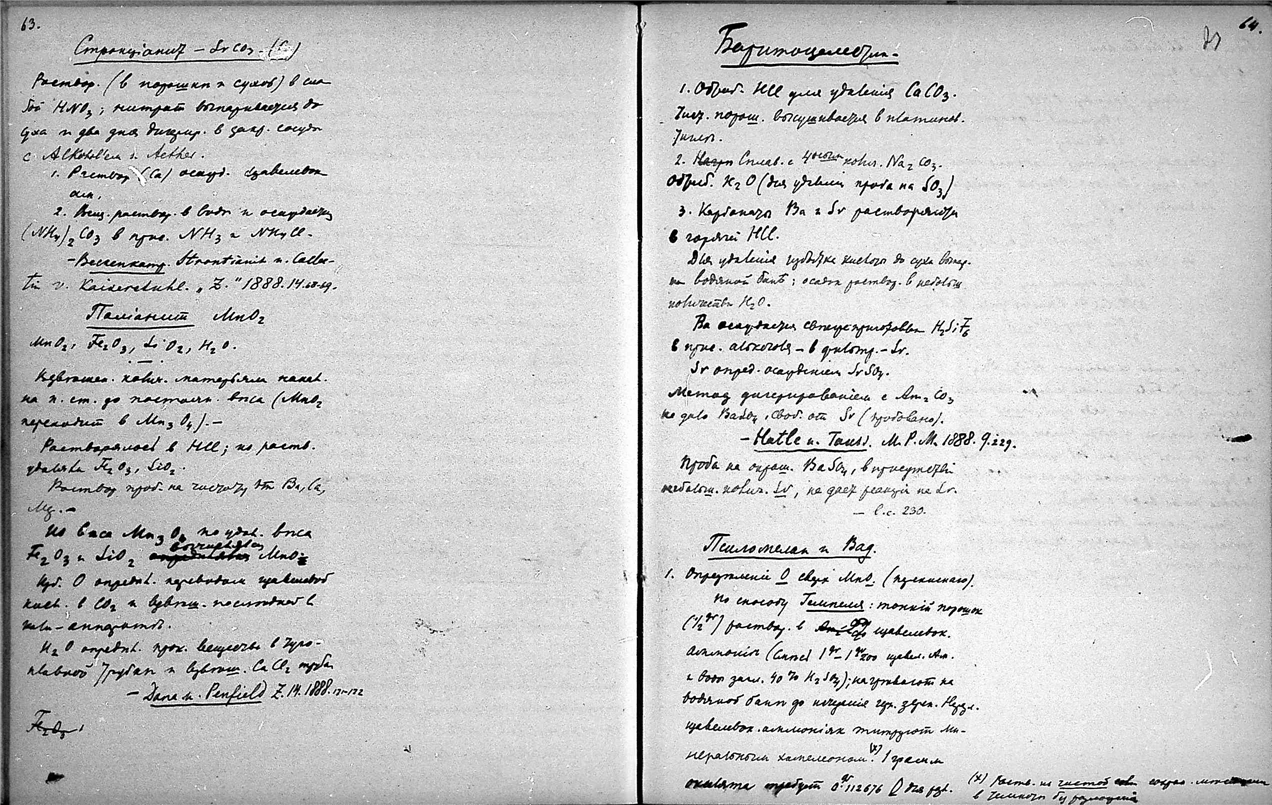 63.
Стронціанит – SrCO3 – (Ca)
Раствор. (в порошкѣ и сухов) в сла-
бой HNO3; нитрат выпаривается до
суха и два дня дигир. в закр. сосудѣ
с Alkohol'ем и Aether.
1. Раствор (Ca) осажд. щавелевок.
ам.
2. раствор. в водѣ и осаждается
(NH4)2CO3 в прис. NH3 и NH4Cl.
– Beckenkamp. Strontianit
v. Kaiserstuhl. „Z." 1888. 14. 68-69.
Поліанит MnO2
MnO2, Fe2O3, SiO2, H2O.
колич. матерьяла накал.
на п. ст. до постоян. вѣса (MnO2
переходит в Mn3O4). –
Растворялось в HCl; из раств.
удаляли Fe2O3, SiO2.
Раствор проб. на чистоту от Ba, Ca,
Mg. –
Из вѣса Mn3O4 по удал. вѣса
Fe2O3 и SiO2 вычисляется MnO2
Изб. O опредѣл. переводом щавелевой
кисл. в CO2 и взвѣш. послѣдней в
кали-аппаратѣ.
H2O опредѣл. прок. вещества в туго-
плавкой трубкѣ и взвѣш. CaCl2 трубк.
– Dana и. Penfield Z. 14. 1888.
Fe2O3
64.
Баритоцелестин.
1. Обраб. HCl для удаленія CaCO3.
Чист. порош. высушивается в платинов.
тиглѣ.
2. Сплав. с колич. Na2CO3.
Обраб. H2O (для удаленія проба на SO3)
3. Карбонаты Ba и Sr растворяются
в горячей HCl.
Для удаленія избытка кислоты до суха выпар.
на водяной банѣ; осадок раствор. в небольш.
количествѣ H2O.
Ba осаждается H2SiF6
в прис. alkohola – в фильтр. – Sr.
Sr опред. осажденіем SrSO4.
Метод дигерированіем с Am2CO3
не дало BaSO4, своб. от Sr (пробовано).
– Hatle u. Tauss. M. P. M. 1888. 9. 229.
Проба на окраш. BaSO4, в присутствіи
небольш. колич. Sr, не дает реакціи на Sr.
– l. c. 230.
Псиломелан и Вад.
1. Опредѣленіе O сверх MnO. (перекиснаго).
По способу Темпеля: тонкій порошок
(1/2 gr) раствор. в щавелевок.
аммоніи (смесь 1 gr – щавел. Am.
и воды закл. 40% H2SO4); нагрѣвают на
водяной банѣ до зерен.
щавелевок. аммоніяк титруют ми-
неральным хамелеоном. (x) 1 грамм
оксалата требует 0.gr112676 O для
(x) Раств. из чистой
в темнотѣ без разложенія